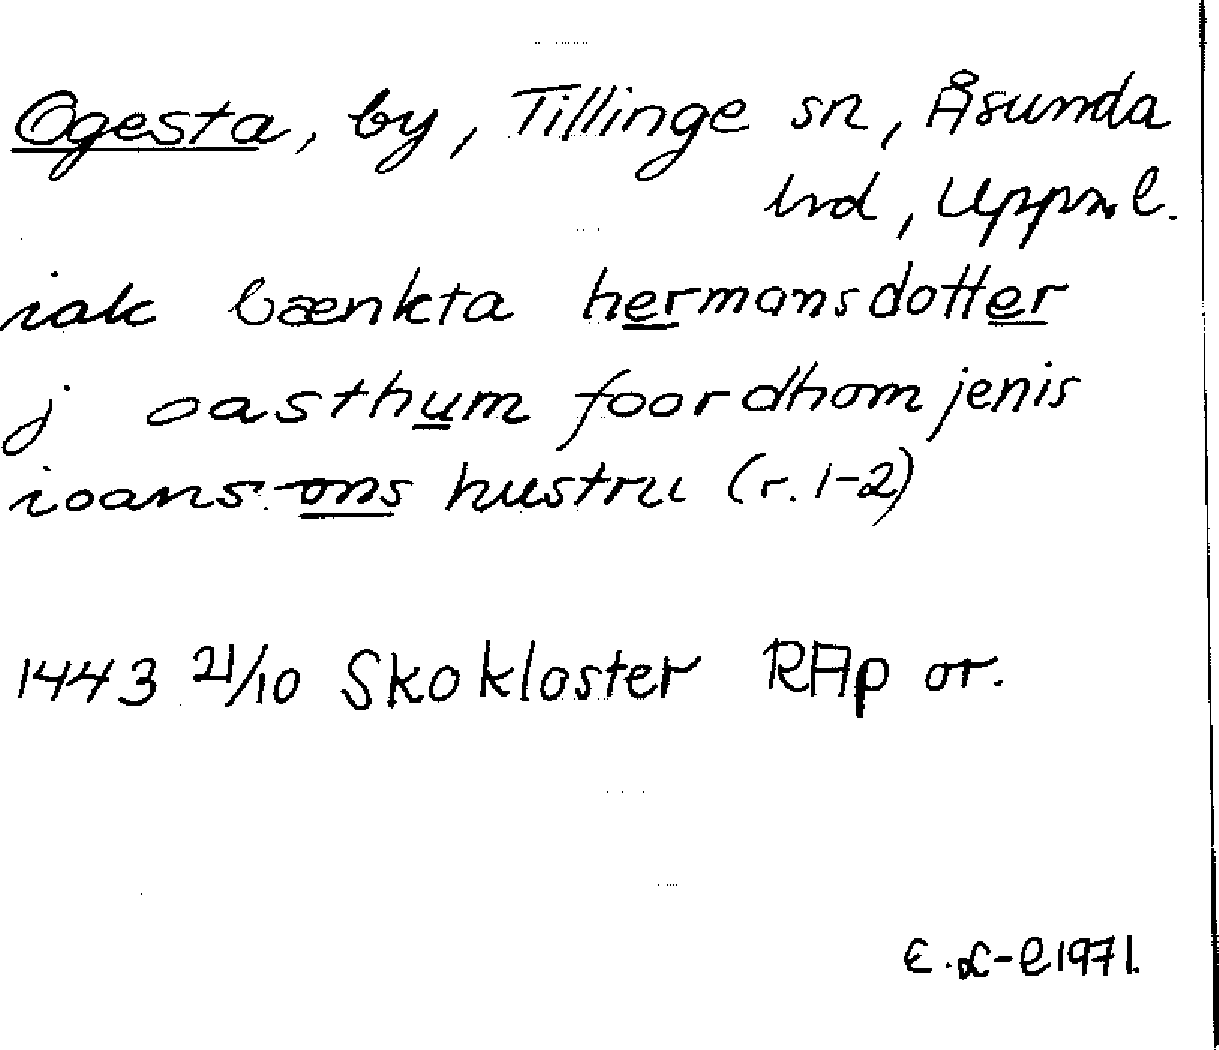 Ogesta, by, Tillinge sn, Åsunda
hrd, Uppsal.
iak bænkta hermansdotter
j oasthum foordhom jenis
ioans-ons hustru (r. 1-2)
1443 21/10 Skokloster RAp or.
1971.